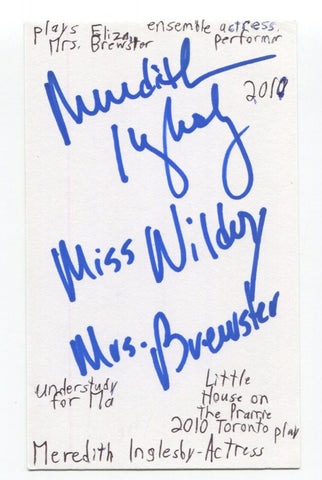 plays Eliza, ensemble actress
Mrs. Brewster performr
2010
Meredith
Inglesby
Miss Wilder
Mrs. Brewster
understudy
for Ma
Little
House on
the Prarie
2010 Toronto play
Meredith Inglesby-Actress